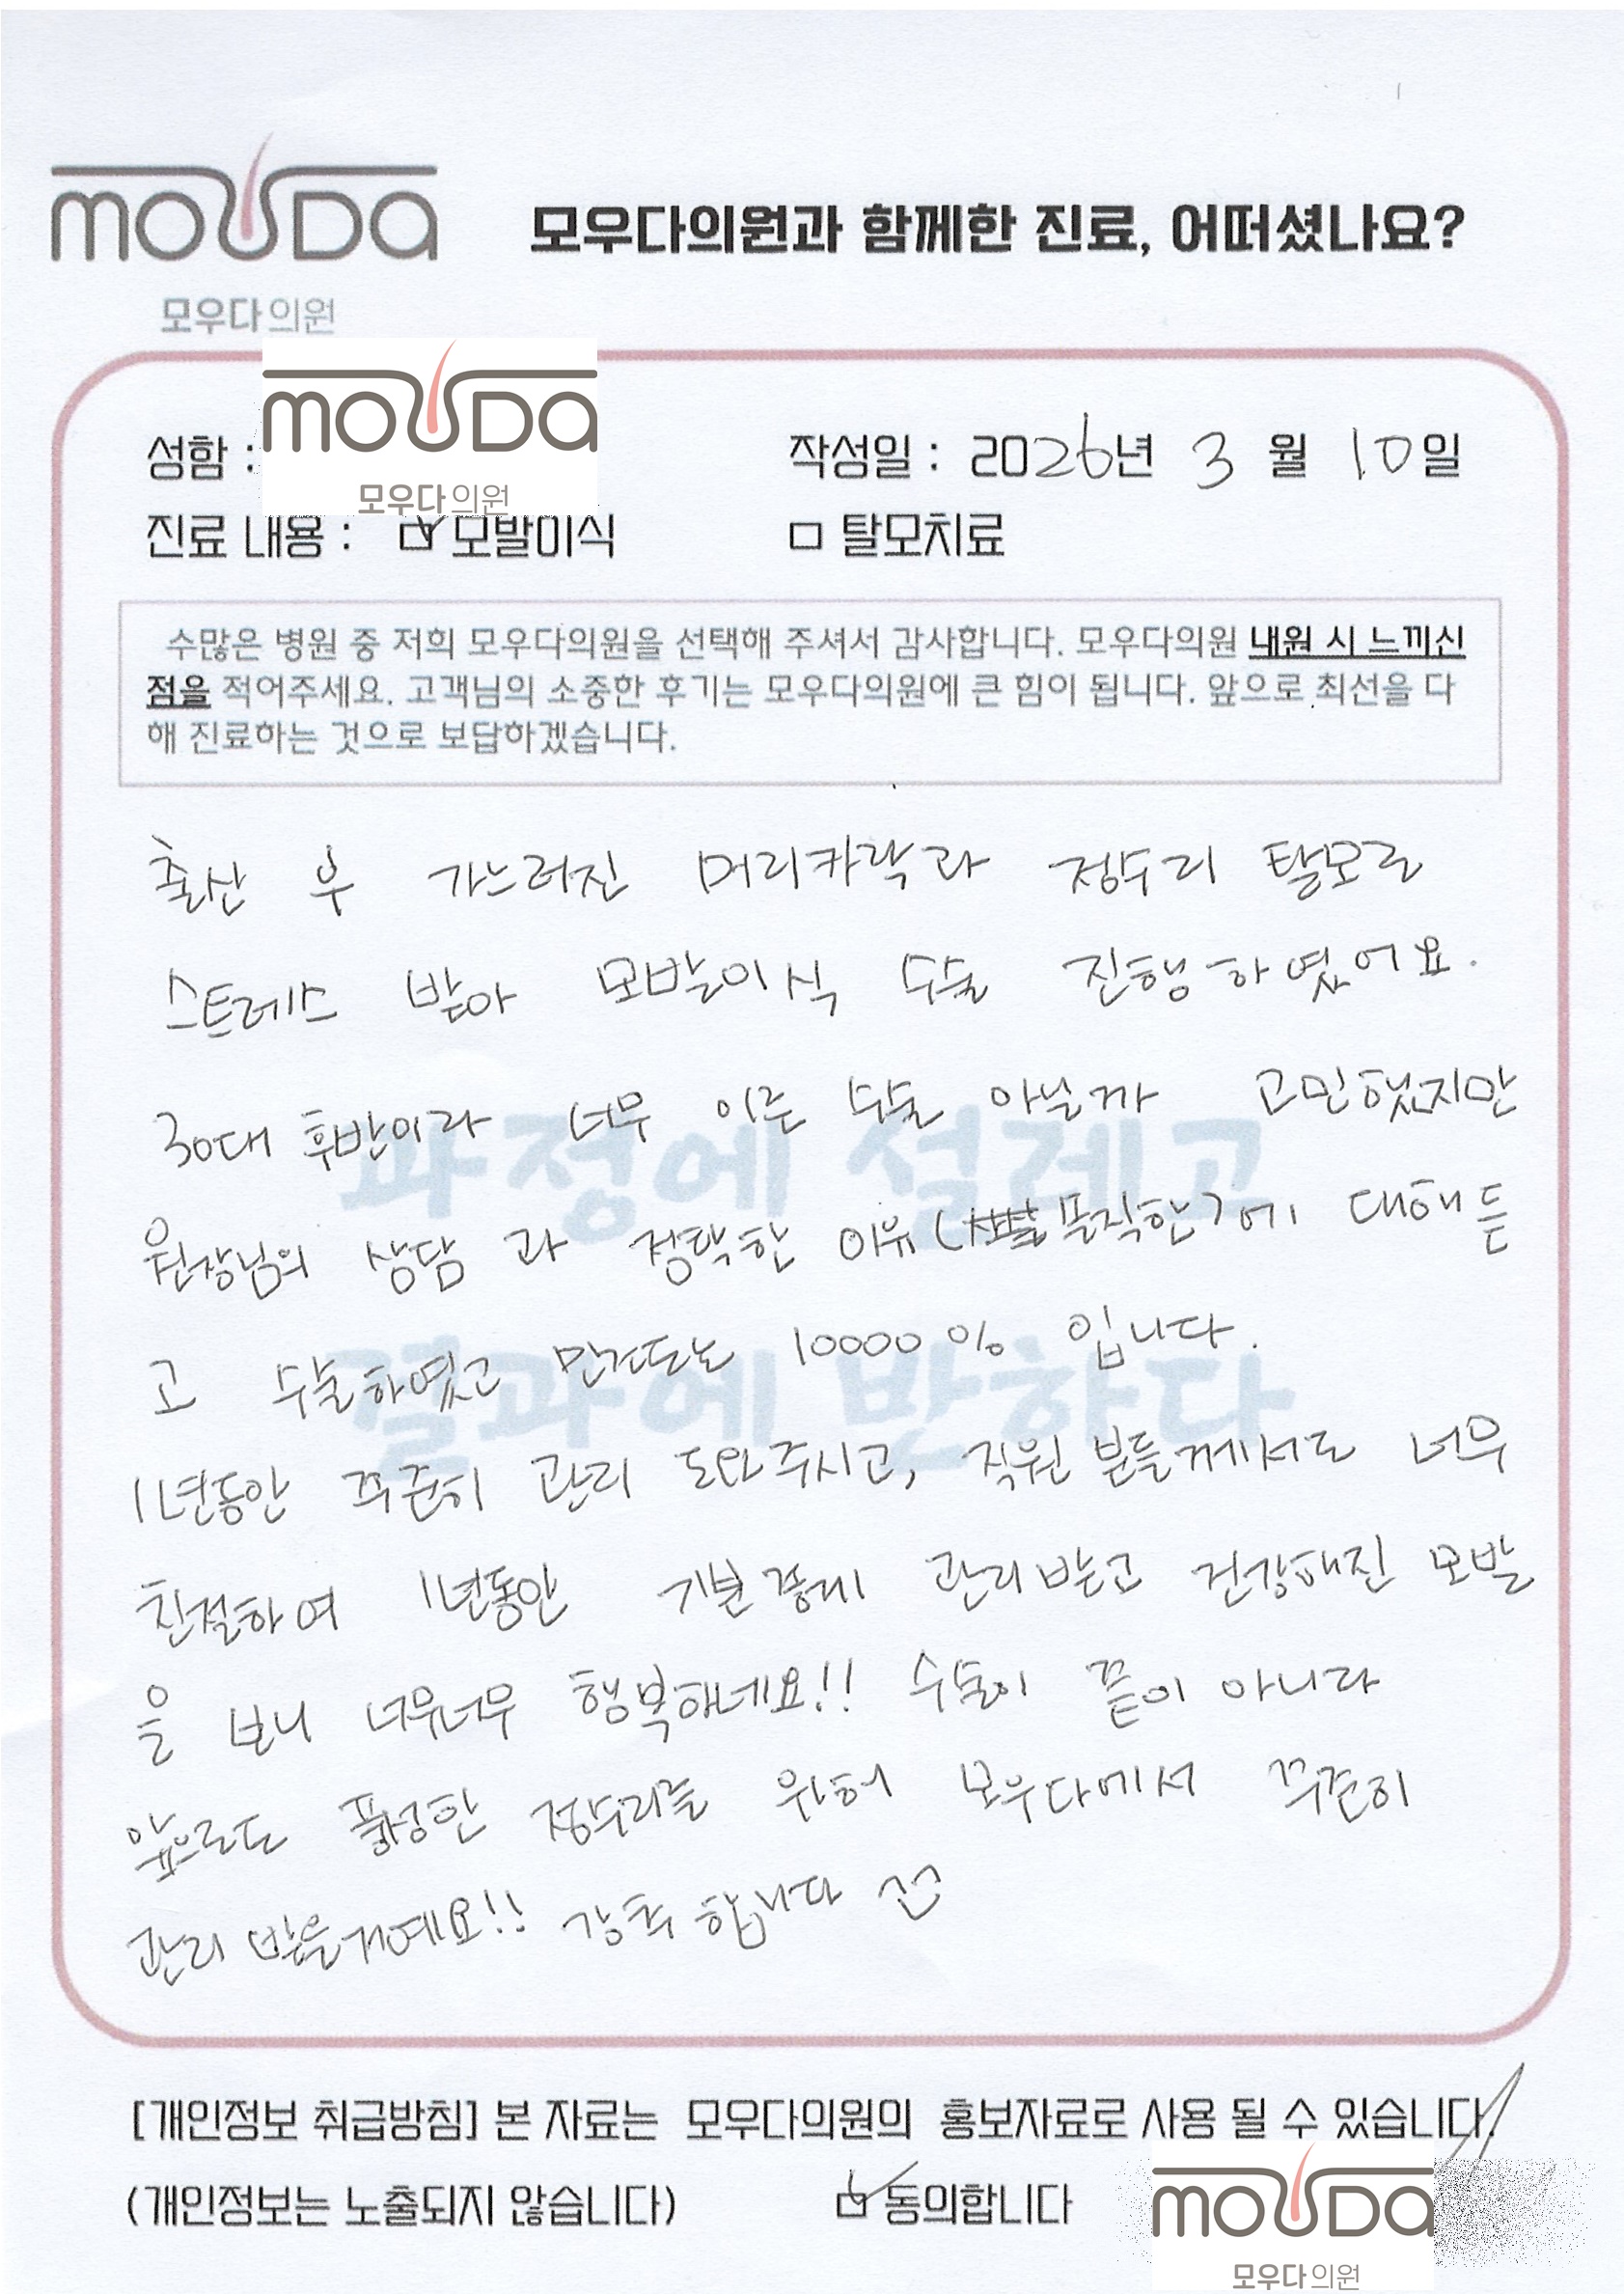 mouDa
모우다의원
모우다의원과 함께한 진료, 어떠셨나요?
mouDa
모우다의원
성함 :
작성일 : 2026년 3 월 10일
진료 내용 : ☑ 모발이식 □ 탈모치료
수많은 병원 중 저희 모우다의원을 선택해 주셔서 감사합니다. 모우다의원 내원 시 느끼신
점을 적어주세요. 고객님의 소중한 후기는 모우다의원에 큰 힘이 됩니다. 앞으로 최선을 다
해 진료하는 것으로 보답하겠습니다.
출산 후 가느러진 머리카락과 정수리 탈모로
스트레스 받아 모발이식 수술 진행하였어요.
30대 후반이라 너무 이른 수술 아닐까 고민했지만
원장님의 상담 과 정확한 이유( 솔직한)에 대해 듣
고 수술하였고 만족도는 10000% 입니다.
1년동안 꾸준히 관리 도와주시고, 직원분들께서도 너무
친절하여 1년동안 기분좋게 관리받고 건강해진 모발
을 보니 너무너무 행복하네요!! 수술이 끝이 아니라
앞으로도 풍성한 정수리를 위해 모우다에서 꾸준히
관리 받을거예요!! 강추 합니다
과정에 설레고
결과에 반하다
[개인정보 취급방침] 본 자료는 모우다의원의 홍보자료로 사용 될 수 있습니다.
(개인정보는 노출되지 않습니다) ☑ 동의합니다
mouDa
모우다의원